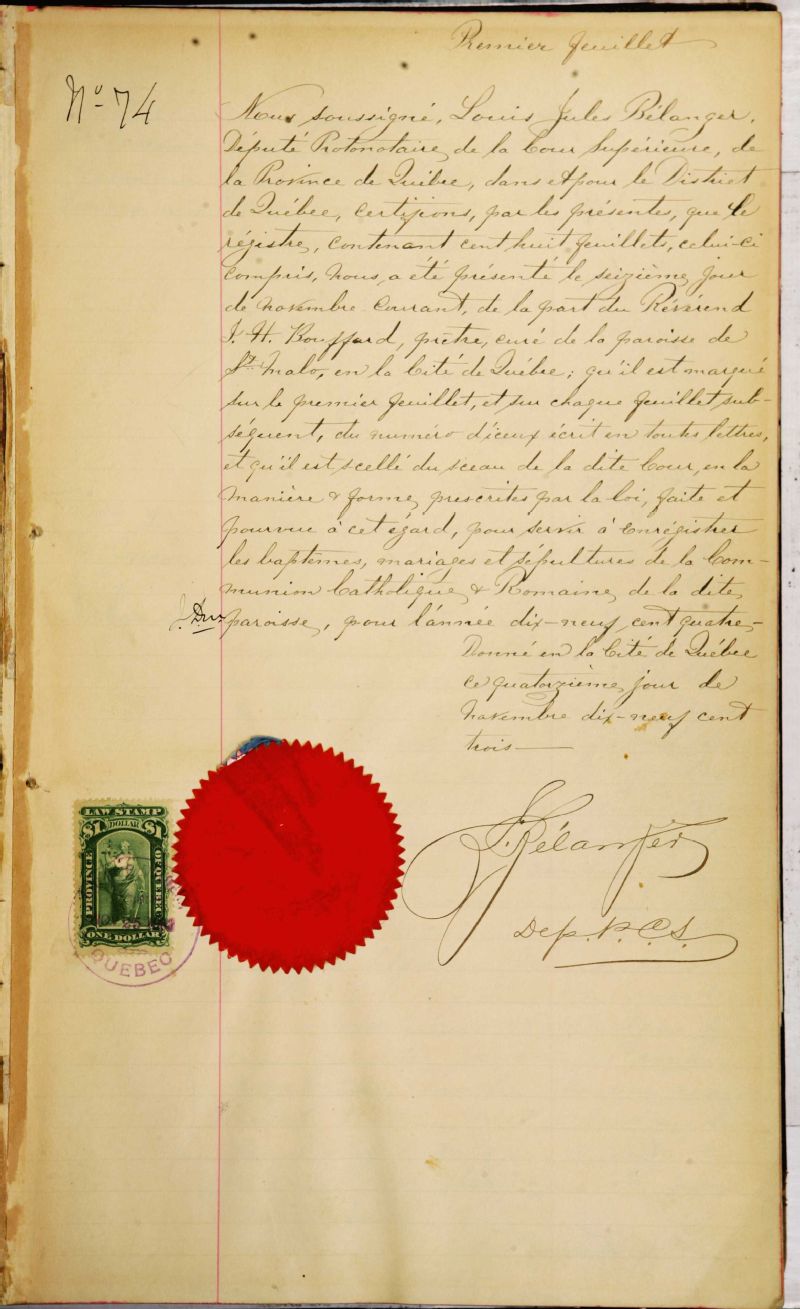 Premier feuillet
No 74
Nous soussigné, Louis Jules Bélanger,
Député Protonotaire, de la Cour Supérieure, de
la Province de Québec, dans et pour le District
de Québec, certifions, par les présentes, que le
régistre, contenant cent huit feuillets, celui-ci
compris, nous a été présenté le seizième jour
de novembre courant, de la part du Révérend
J. H. Bouffard, prêtre, curé de la paroisse de
St. Malo, en la Cité de Québec; qu'il est marqué
sur le premier feuillet, et sur chaque feuillet sub-
séquent, du numéro d'iceux écrit en toutes lettres,
et qu'il est scellé du sceau de la dite Cour, en la
manière & forme, prescrites par la loi, faite et
pourvue à cet égard, pour servir à enrégistrer
les baptêmes, mariages et sépultures de la Com-
munion Catholique & Romaine, de la dite,
paroisse, pour l'année dix-neuf cent quatre-
Donné en la Cité de Québec
ce quatorzième jour de
novembre dix-neuf cent
trois
LAW STAMP
$1 DOLLAR $1
PROVINCE OF QUEBEC
ONE DOLLAR
QUEBEC
L. Bélanger
Dep. P.C.S.